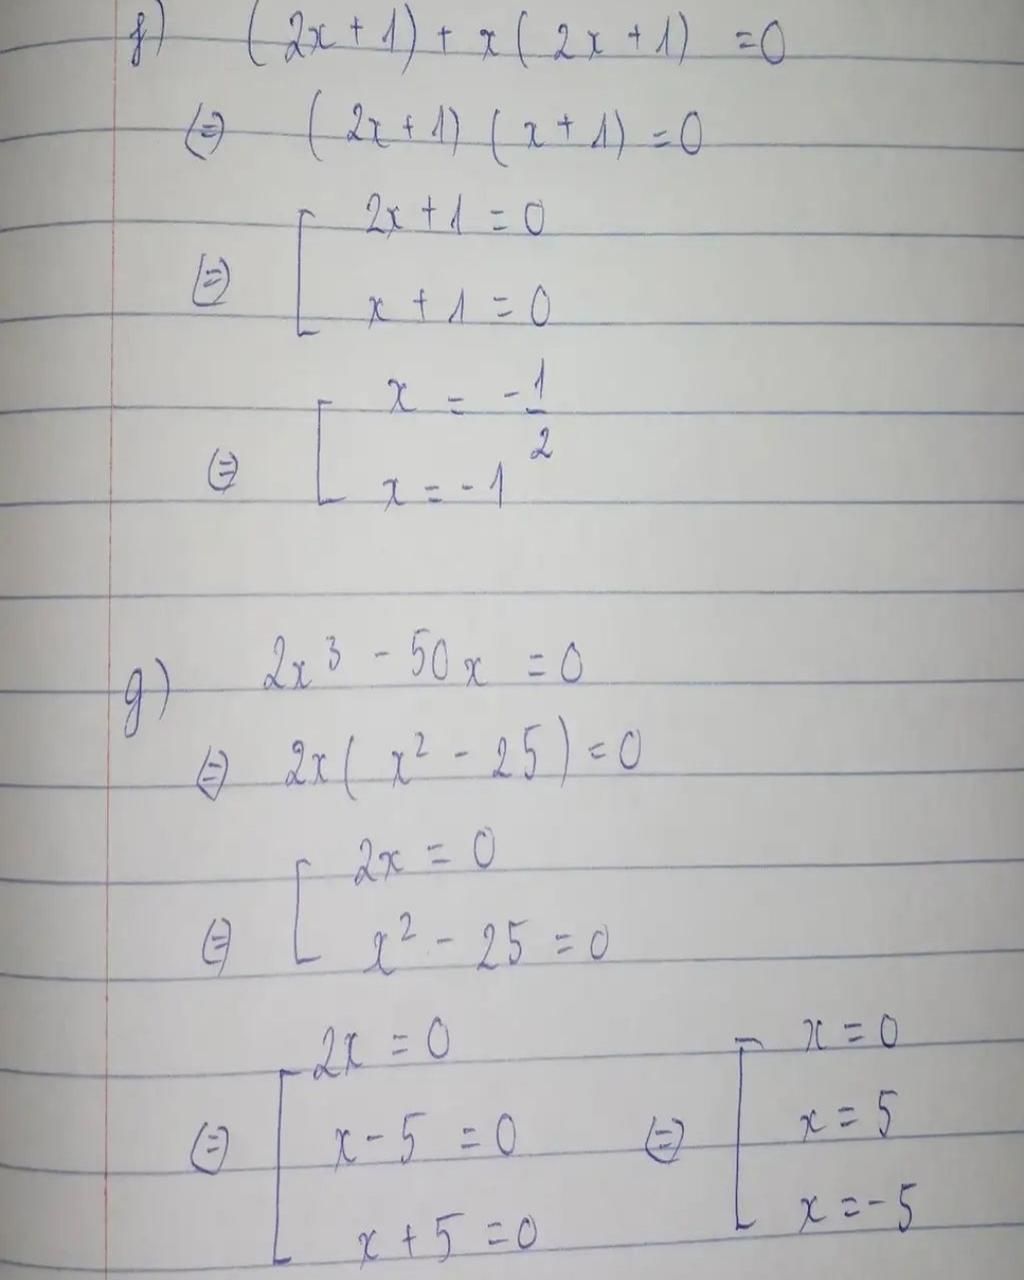 f) (2x + 1) + x(2x + 1) = 0
⇔ (2x + 1)(x + 1) = 0
⇔ [ 2x + 1 = 0
x + 1 = 0
⇔ [ x = -1/2
x = -1
g) 2x³ - 50x = 0
⇔ 2x(x² - 25) = 0
⇔ [ 2x = 0
x² - 25 = 0
⇔ [ 2x = 0
x - 5 = 0
x + 5 = 0
⇔ [ x = 0
x = 5
x = -5